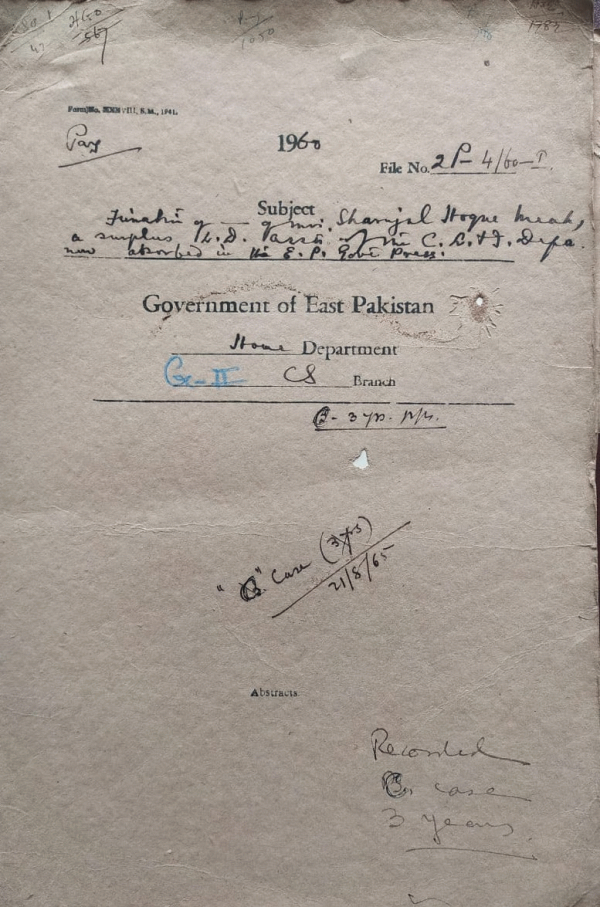 567
1050
1787
Form No. XXXVIII, S.M., 1941.
Pay
1960
File No. 2P-4/60-I.
Subject
of Mvi. Shamsul Hoque Meah,
a surplus L.D. Asstt of the C. & I. Depa.
now absorbed in the E. P. Govt Press.
Government of East Pakistan
Home Department
CS Branch
B- 3 yrs.
"B" Case (3 yrs)
21/8/65
Abstracts
Recorded
B case
3 years